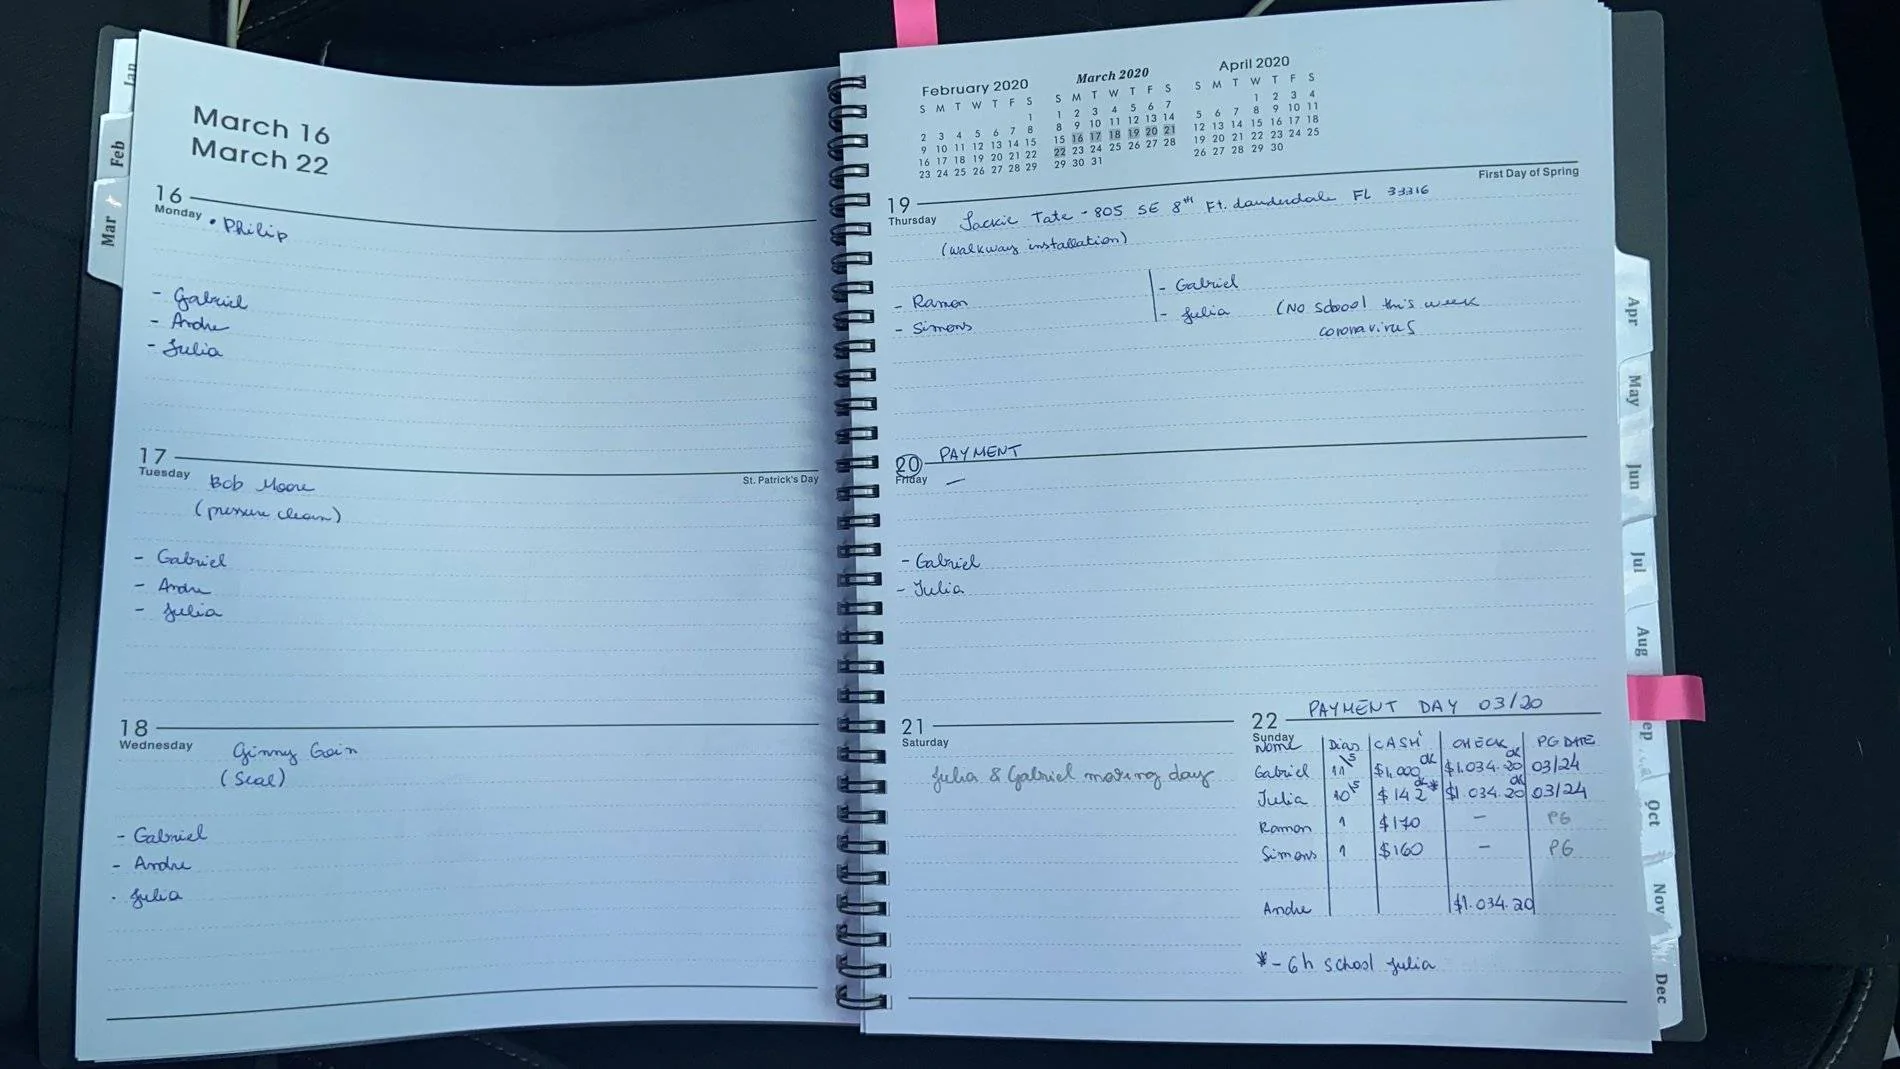 Jan
Feb
Mar
March 16
March 22
16
Monday
• Philip
- Gabriel
- Andre
- Julia
17
Tuesday
St. Patrick's Day
Bob Moore
(pressure clean)
- Gabriel
- Andre
- Julia
18
Wednesday
Ginny Goin
(Seal)
- Gabriel
- Andre
- Julia
February 2020
S M T W T F S
1
2 3 4 5 6 7 8
9 10 11 12 13 14 15
16 17 18 19 20 21 22
23 24 25 26 27 28 29
March 2020
S M T W T F S
1 2 3 4 5 6 7
8 9 10 11 12 13 14
15 16 17 18 19 20 21
22 23 24 25 26 27 28
29 30 31
April 2020
S M T W T F S
1 2 3 4
5 6 7 8 9 10 11
12 13 14 15 16 17 18
19 20 21 22 23 24 25
26 27 28 29 30
First Day of Spring
19
Thursday
Jackie Tate - 805 SE 8th Ft. Lauderdale FL 33316
(walkway installation)
- Ramon
- Simons
- Gabriel
- Julia (No school this week
coronavirus
20 PAYMENT
Friday
- Gabriel
- Julia
21
Saturday
Julia & Gabriel moving day
22 PAYMENT DAY 03/20
Sunday
Name Dias CASH CHECK PG DATE
Gabriel 11 5 $1,000 ok $1.034.20 ok 03/24
Julia 10 5 $142 ok * $1.034.20 ok 03/24
Ramon 1 $170 - PG
Simons 1 $160 - PG
Andre $1.034.20
* - 6h school Julia
Apr
May
Jun
Jul
Aug
ep
Oct
Nov
Dec